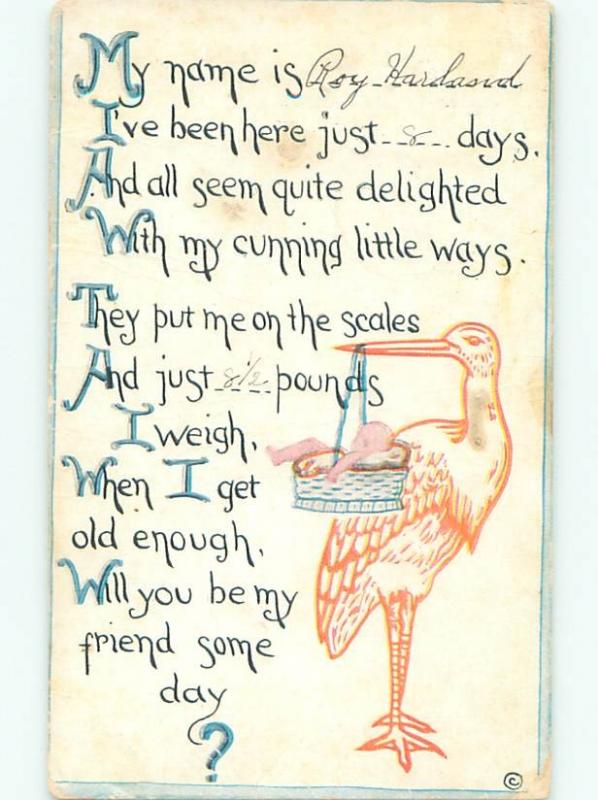 My name is Roy Hardasud
I've been here just 8 days.
And all seem quite delighted
With my cunning little ways.
They put me on the scales
And just 8½ pounds
I weigh,
When I get
old enough,
Will you be my
friend some
day
?
©